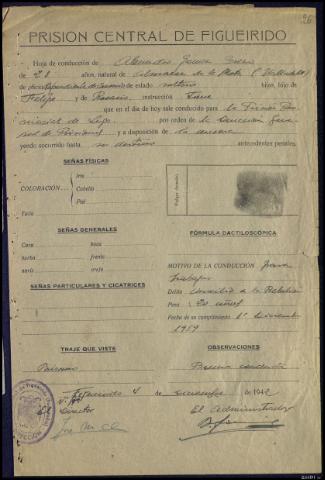 26
PRISIÓN CENTRAL DE FIGUEIRIDO
Hoja de conducción de Alejandro
de 28 años, natural de de la Mata (Valladolid)
de oficio Dependiente de Comercio de estado soltero hijos, hijo de
Felipe y de Rosario, instrucción tiene
que en el día de hoy sale conducido para la Prisión Pro-
vincial de Lugo por orden de la Dirección Gene-
ral de Prisiones y a disposición de la misma
yendo socorrido hasta su destino antecedentes penales.
SEÑAS FÍSICAS
COLORACIÓN
Iris
Cabello
Piel
Talla
Pulgar derecho
SEÑAS GENERALES
Cara
boca
barba
frente
nariz
oreja
FÓRMULA DACTILOSCÓPICA
MOTIVO DE LA CONDUCCIÓN Para
trabajos
Delito Auxilio a la Rebelión
Pena 20 años
Fecha de su cumplimiento 1º Diciembre
1959
SEÑAS PARTICULARES Y CICATRICES
TRAJE QUE VISTE
Paisano
OBSERVACIONES
Buena conducta
Figueirido 4 de de 1942
Vº Bº
El Director
El Administrador